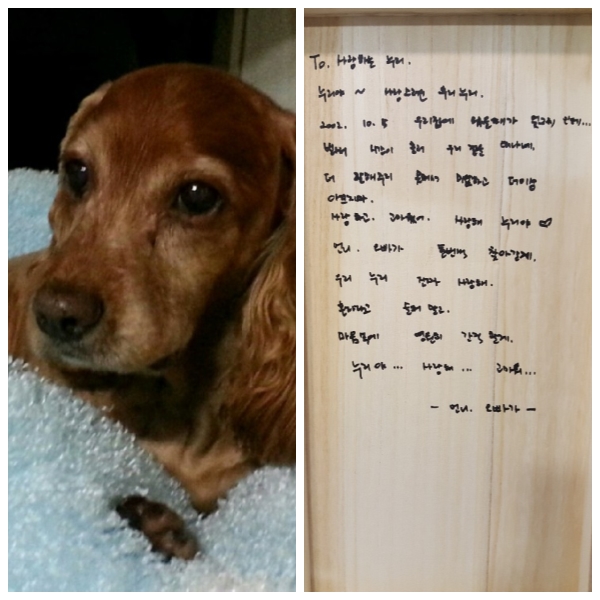 To. 사랑하는 누리.
누리야 ~ 사랑스런 우리누리.
2002. 10. 5 우리집에 왔을때가 엊그제 같은데...
벌써 시간이 흘러 우리 곁을 떠나네.
더 잘해주지 못해서 미안하고 더이상
아프지마.
사랑하고. 고마웠어. 사랑해 누리야 ♡
언니. 오빠가 찾아갈게.
우리 누리 진짜 사랑해.
혼자라고 슬퍼 말고.
마음속에 영원히 간직 할게.
누리야 ... 사랑해 ... 고마워...
- 언니. 오빠가 -